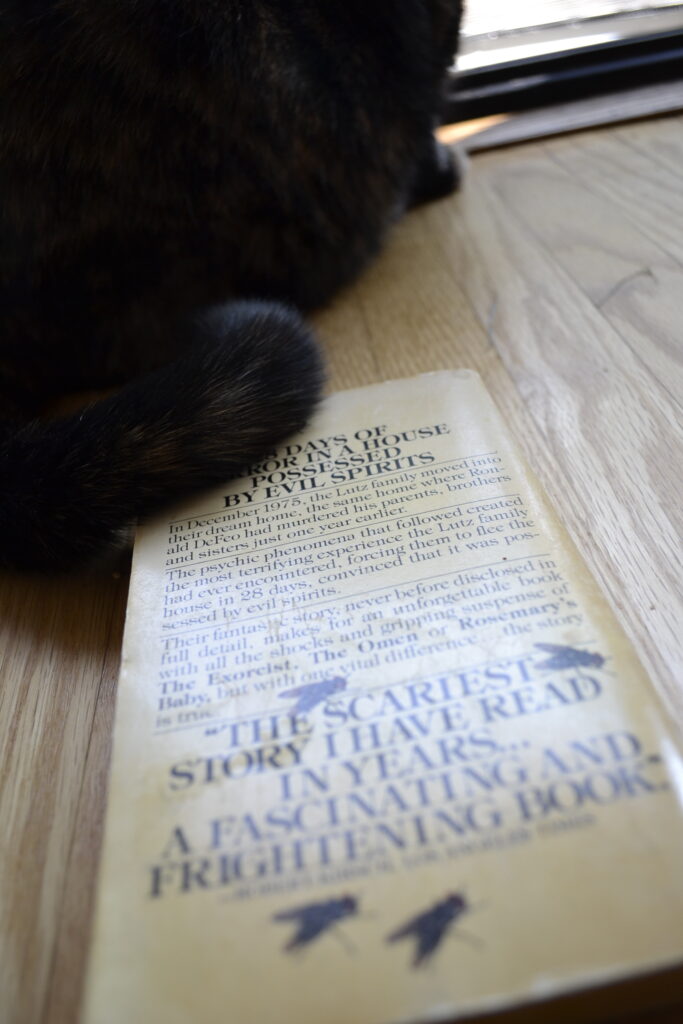 8 DAYS OF
ROR IN A HOUSE
POSSESSED
BY EVIL SPIRITS
In December 1975, the Lutz family moved into
their dream home, the same home where Ron-
ald DeFeo had murdered his parents, brothers
and sisters just one year earlier.
The psychic phenomena that followed created
the most terrifying experience the Lutz family
had ever encountered, forcing them to flee the
house in 28 days, convinced that it was pos-
sessed by evil spirits.
Their fantastic story, never before disclosed in
full detail, makes for an unforgettable book
with all the shocks and gripping suspense of
The Exorcist, The Omen or Rosemary's
Baby, but with one vital difference... the story
is true.
"THE SCARIEST
STORY I HAVE READ
IN YEARS...
A FASCINATING AND
FRIGHTENING BOOK."
—ROBERT KIRSCH, LOS ANGELES TIMES